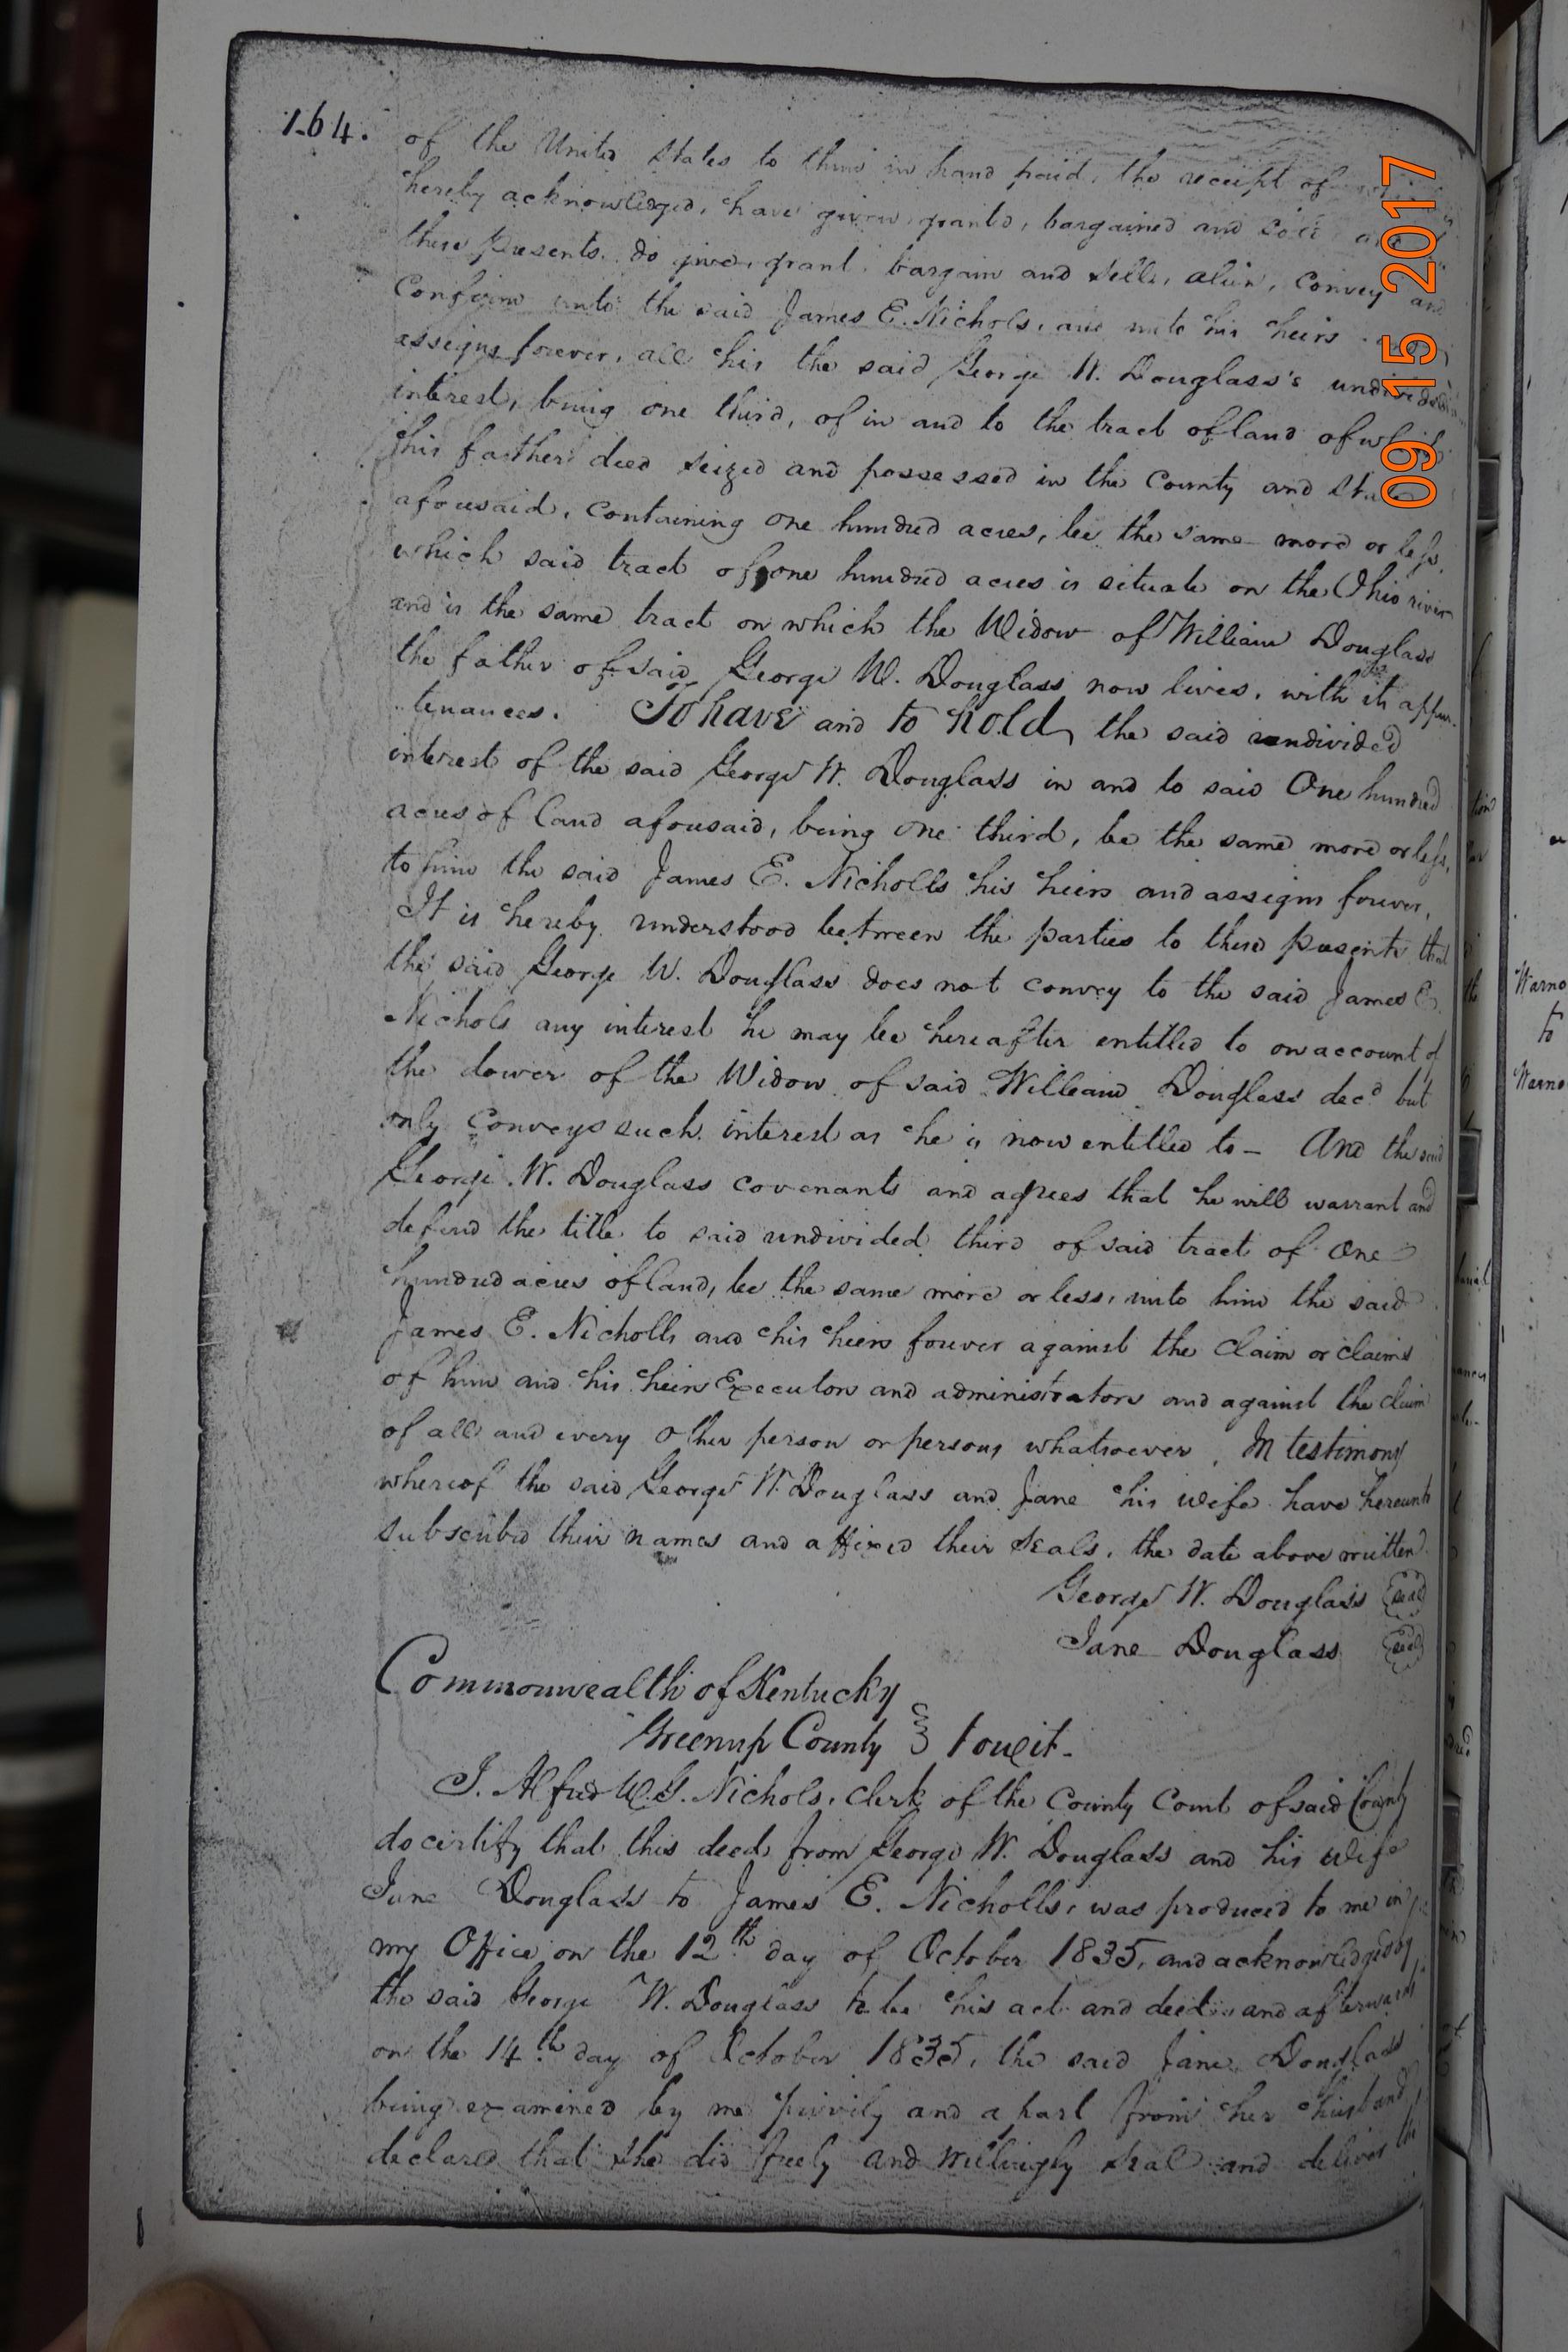 164.
of the United States to them in hand paid, the receipt of
hereby acknowledged, have given, granted, bargained and sold and
these presents do give, grant, bargain and sell, alien, convey and
Confirm unto the said James E. Nichols, and unto his heirs
assigns forever, all his the said George W. Douglass's undivided
interest, being one third, of in and to the tract of land of which
his father died seized and possessed in the County and State
aforesaid, containing one hundred acres, be the same more or less,
which said tract of one hundred acres is situate on the Ohio river
and is the same tract on which the Widow of William Douglass
the father of said George W. Douglass now lives, with its appur-
tenances. To have and to hold, the said undivided
interest of the said George W. Douglass in and to said One hundred
acres of land aforesaid, being one third, be the same more or less,
to him the said James E. Nicholls his heirs and assigns forever,
It is hereby understood between the parties to these presents that
the said George W. Douglass does not convey to the said James E.
Nichols any interest he may be hereafter entitled to on account of
the dower of the Widow of said William Douglass decd but
only conveys such interest as he is now entitled to - And the said
George W. Douglass covenants and agrees that he will warrant and
defend the title to said undivided third of said tract of One
hundred acres of land, be the same more or less, unto him the said
James E. Nicholls and his heirs forever against the claim or claims
of him and his heirs Executors and administrators and against the claim
of all and every other person or persons whatsoever. In testimony
whereof the said George W. Douglass and Jane his wife have hereunto
subscribed their names and affixed their seals, the date above written.
George W. Douglass seal
Jane Douglass seal
Commonwealth of Kentucky
Greenup County } towit-
I. Alfred W. G. Nichols, Clerk of the County Court of said County
do certify that this deed from George W. Douglass and his wife
Jane Douglass to James E. Nicholls, was produced to me in
my Office on the 12th day of October 1835, and acknowledged by
the said George W. Douglass to be his act and deed, and afterwards
on the 14th day of October 1835, the said Jane Douglass
being examined by me privily and apart from her husband
declared that she did freely and willingly seal and deliver the
09 15 2017
Warno
to
Warno